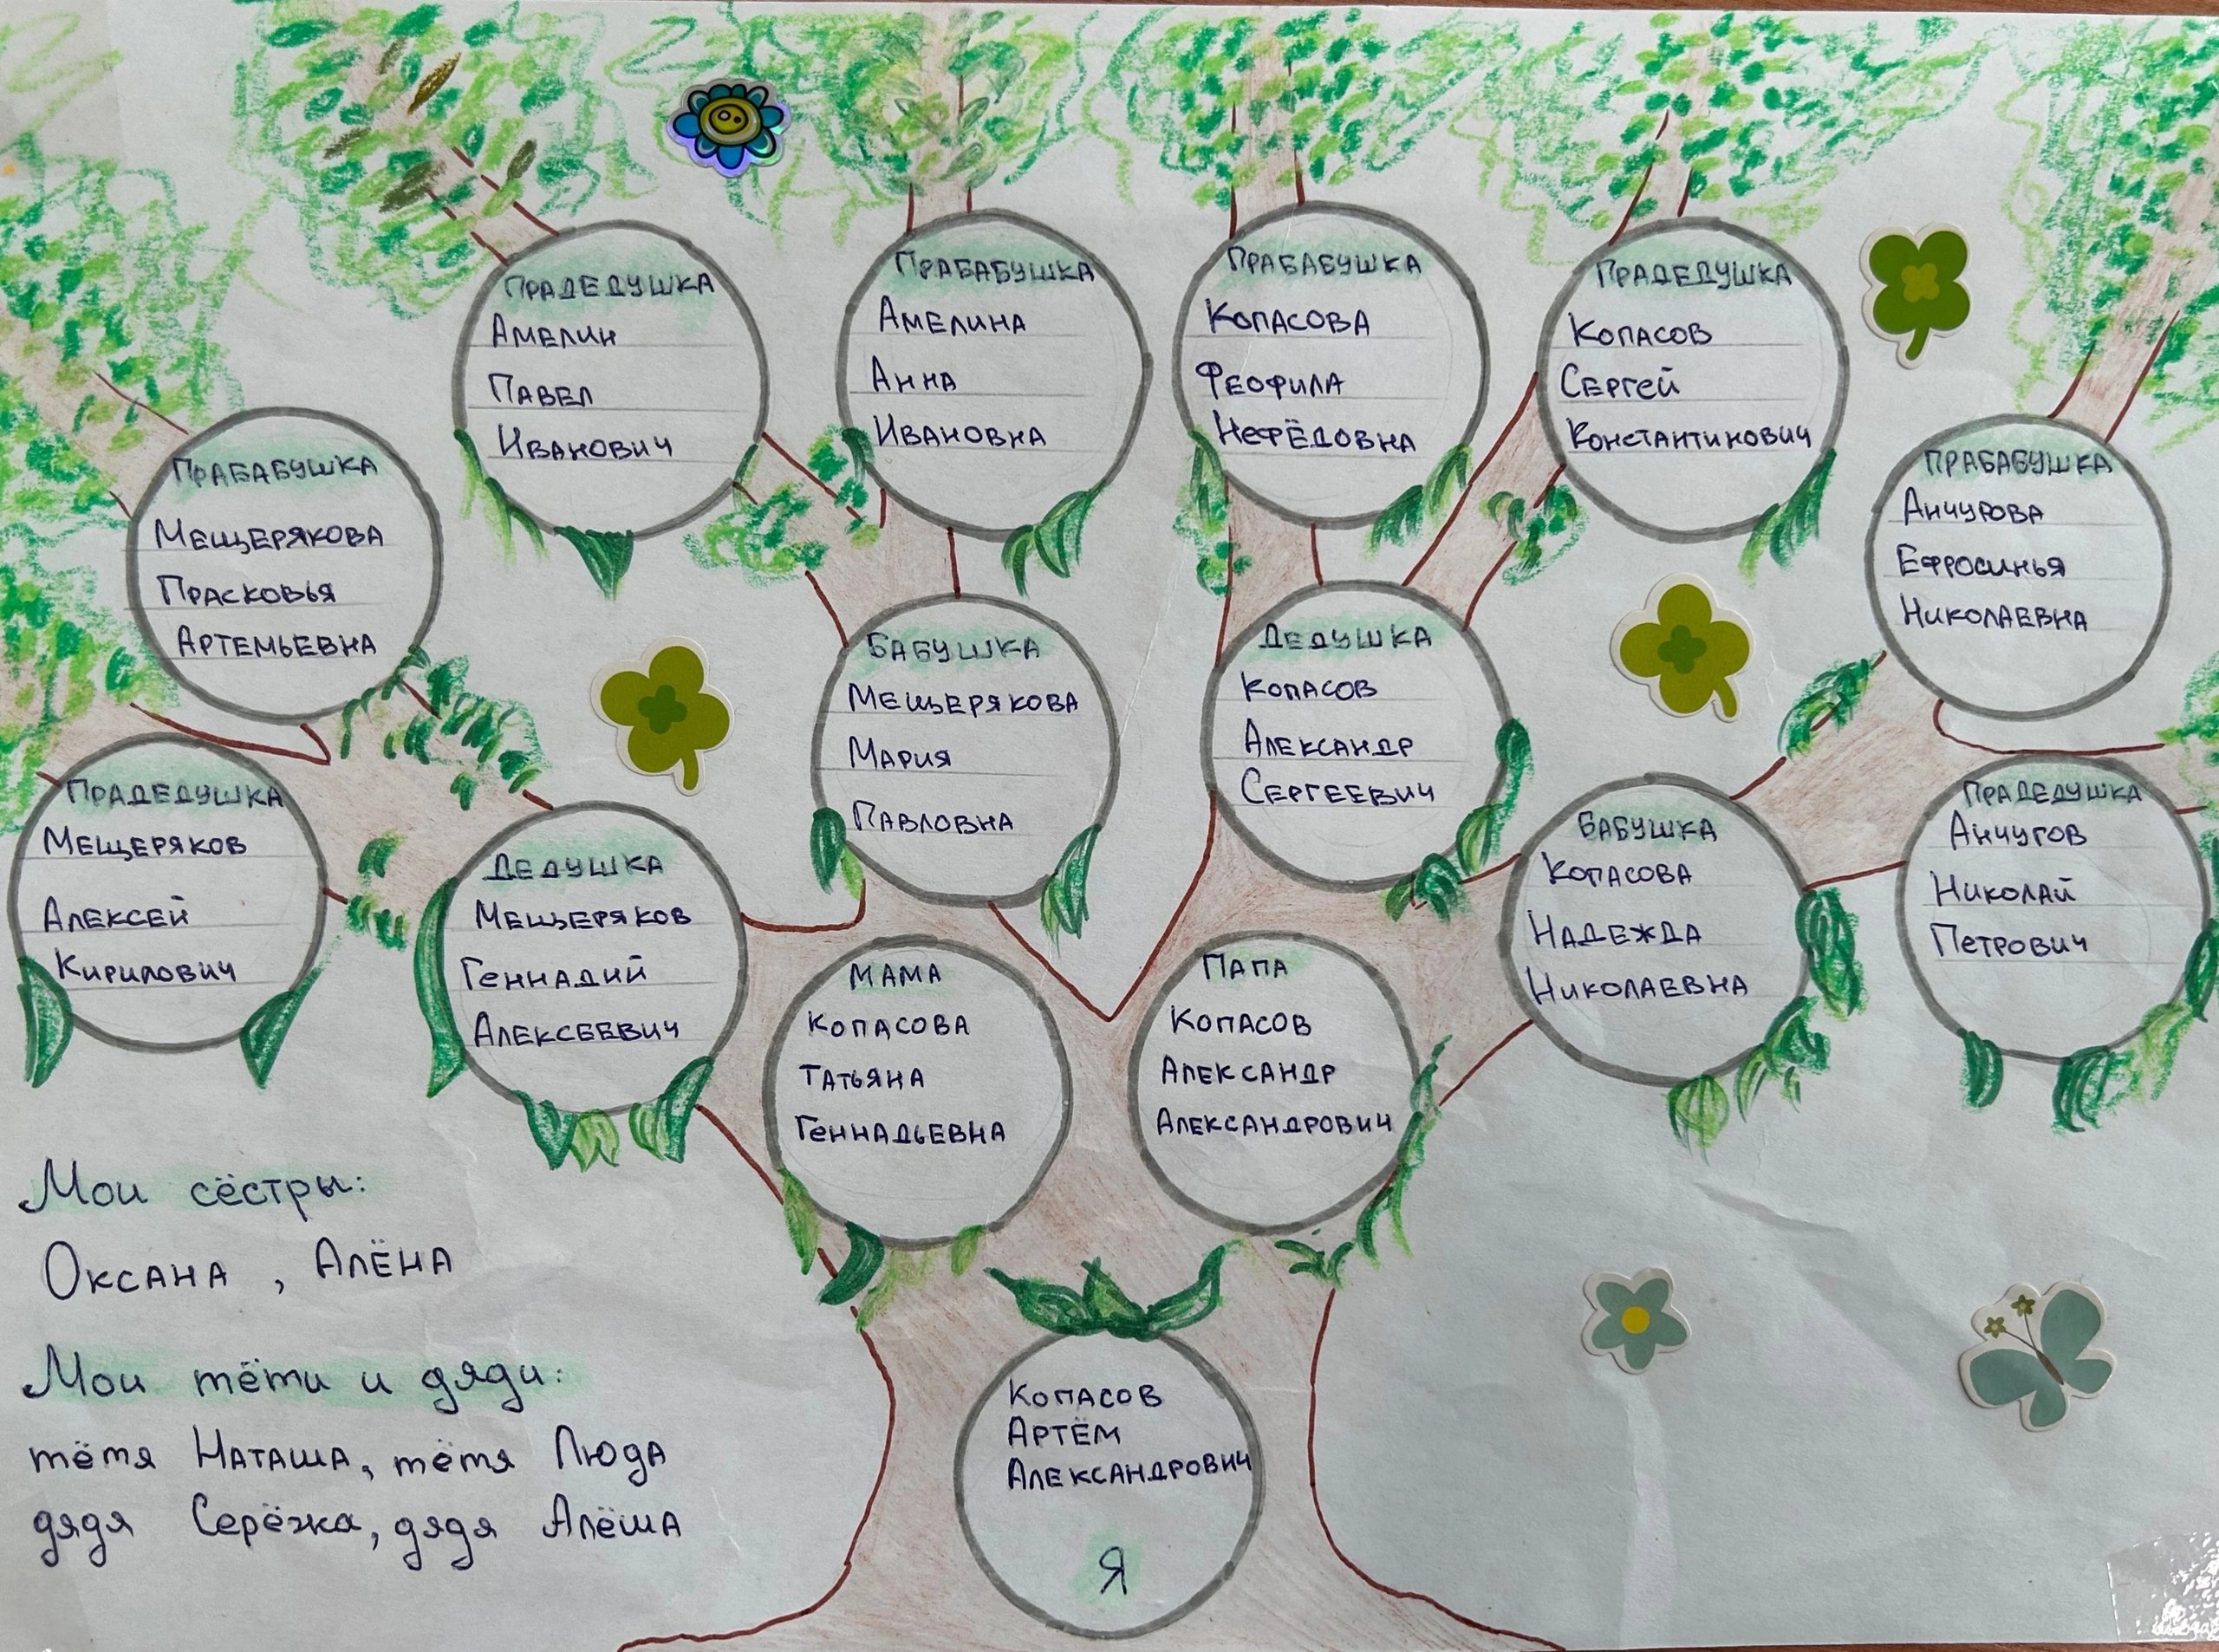 ПРАДЕДУШКА
АМЕЛИН
ПАВЕЛ
ИВАНОВИЧ
ПРАБАБУШКА
АМЕЛИНА
АННА
ИВАНОВНА
ПРАБАБУШКА
КОПАСОВА
ФЕОФИЛА
НЕФЁДОВНА
ПРАДЕДУШКА
КОПАСОВ
СЕРГЕЙ
КОНСТАНТИНОВИЧ
ПРАБАБУШКА
МЕЩЕРЯКОВА
ПРАСКОВЬЯ
АРТЕМЬЕВНА
ПРАБАБУШКА
АНЧУГОВА
ЕФРОСИНЬЯ
НИКОЛАЕВНА
БАБУШКА
МЕЩЕРЯКОВА
МАРИЯ
ПАВЛОВНА
ДЕДУШКА
КОПАСОВ
АЛЕКСАНДР
СЕРГЕЕВИЧ
ПРАДЕДУШКА
МЕЩЕРЯКОВ
АЛЕКСЕЙ
КИРИЛОВИЧ
ДЕДУШКА
МЕЩЕРЯКОВ
ГЕННАДИЙ
АЛЕКСЕЕВИЧ
БАБУШКА
КОПАСОВА
НАДЕЖДА
НИКОЛАЕВНА
ПРАДЕДУШКА
АНЧУГОВ
НИКОЛАЙ
ПЕТРОВИЧ
МАМА
КОПАСОВА
ТАТЬЯНА
ГЕННАДЬЕВНА
ПАПА
КОПАСОВ
АЛЕКСАНДР
АЛЕКСАНДРОВИЧ
Мои сёстры:
ОКСАНА, АЛЁНА
Мои тёти и дяди:
тётя НАТАША, тётя ЛЮДА
дядя Серёжка, дядя АЛЁША
КОПАСОВ
АРТЁМ
АЛЕКСАНДРОВИЧ
Я